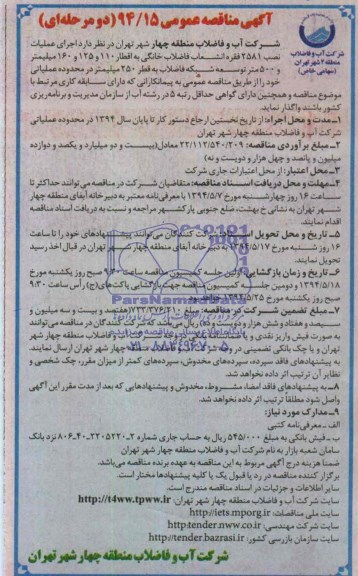 آگهی مناقصه عمومی ۹۴/۱۵ (دو مرحله‌ای)
شرکت آب و فاضلاب
منطقه ۴ شهر تهران
(سهامی خاص)
شرکت آب و فاضلاب منطقه چهار شهر تهران در نظر دارد اجرای عملیات
نصب ۲۵۸۱ فقره انشعاب فاضلاب خانگی به اقطار ۱۱۰ و ۱۲۵ و ۱۶۰ میلیمتر
و ۵۰۰ متر توسعه شبکه فاضلاب به قطر ۲۵۰ میلیمتر در محدوده عملیاتی
خود را از طریق مناقصه عمومی به پیمانکارانی که دارای سابقه کاری مرتبط با
موضوع مناقصه و همچنین دارای گواهی حداقل رتبه ۵ در رشته آب از سازمان مدیریت و برنامه‌ریزی
کشور باشند واگذار نماید.
۱ـ مدت و محل اجرا: از تاریخ نخستین ارجاع دستور کار تا پایان سال ۱۳۹۴ در محدوده عملیاتی
شرکت آب و فاضلاب منطقه چهار شهر تهران
۲ـ مبلغ برآوردی مناقصه: ۲۲/۱۱۲/۵۴۰/۲۰۹ معادل (بیست و دو میلیارد و یکصد و دوازده
میلیون و پانصد و چهل هزار و دویست و نه)
۳ـ محل اعتبار: از محل اعتبارات جاری شرکت
۴ـ مهلت و محل دریافت اسناد مناقصه: متقاضیان شرکت در مناقصه می‌توانند حداکثر تا
ساعت ۱۶ روز چهارشنبه مورخ ۱۳۹۴/۵/۷ با معرفی‌نامه معتبر به دبیرخانه آبفای منطقه چهار
شهر تهران به نشانی خ بهشت، ضلع جنوبی پارکشهر مراجعه و نسبت به دریافت اسناد مناقصه
اقدام نمایند.
۵ـ تاریخ و محل تحویل شرکت کنندگان می‌توانند پیشنهادهای خود را تا ساعت
۱۶ روز شنبه مورخ ۱۳۹۴/۵/۱۷ به دبیرخانه آبفای منطقه چهار شهر تهران در قبال اخذ رسید
تحویل نمایند.
۶ـ تاریخ و زمان بازگشایی: اولین جلسه کمیسیون مناقصه ساعت ۹:۳۰ صبح روز یکشنبه مورخ
۱۳۹۴/۵/۱۸ و دومین جلسه کمیسیون مناقصه جهت بازگشایی پاکت‌های (ج) رأس ساعت ۹:۳۰
صبح روز یکشنبه مورخ ۱۳۹۴/۵/۲۵
۷ـ مبلغ تضمین شرکت در مناقصه: مبلغ ۷۳۳/۳۷۶/۲۱۰ ریال می‌باشد که شرکت کنندگان در مناقصه می‌توانند
به صورت فیش واریز نقدی و یا ضمانتنامه بانکی شرکت آب و فاضلاب منطقه چهار شهر
تهران و یا چک بانکی تضمینی در وجه شرکت آب و فاضلاب منطقه چهار شهر تهران ارسال نمایند.
به پیشنهادهای فاقد سپرده، سپرده‌های مخدوش، سپرده‌های کمتر از میزان مقرر، چک شخصی و
نظایر آن ترتیب اثر داده نخواهد شد.
۸ـ به پیشنهادهای فاقد امضا، مشروط، مخدوش و پیشنهادهایی که بعد از مدت مقرر این آگهی
واصل شود مطلقاً ترتیب اثر داده نخواهد شد.
۹ـ مدارک مورد نیاز:
الف ـ معرفی‌نامه کتبی
ب ـ فیش بانکی به مبلغ ۵۴۵/۰۰۰ ریال به حساب جاری شماره ۲ـ۲۲۰۵۲۲۰ـ۴۰ـ۸۰۶ نزد بانک
سامان شعبه بازار به نام شرکت آب و فاضلاب منطقه چهار شهر تهران
ضمناً هزینه درج آگهی مربوط به این مناقصه به عهده برنده مناقصه می‌باشد.
برگزار کننده مناقصه در رد یا قبول یک یا کلیه پیشنهادها مختار است.
سایر اطلاعات و جزئیات در اسناد مناقصه مندرج است.
سایت شرکت آب و فاضلاب منطقه چهار شهر تهران: http://t4ww.tpww.ir
سایت ملی مناقصات: http://iets.mporg.ir
سایت شرکت مهندسی: http:tender.nww.co.ir
سایت سازمان بازرسی کشور: http://tender.bazrasi.ir
شرکت آب و فاضلاب منطقه چهار شهر تهران
ParsNamadData